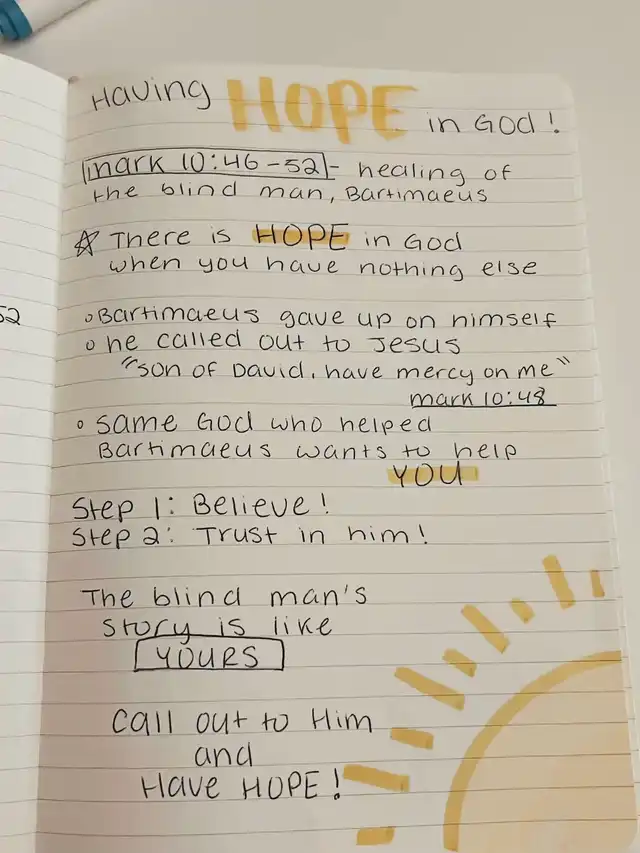 Having HOPE in God!
mark 10:46-52 - healing of
the blind man, Bartimaeus
☆ There is HOPE in God
when you have nothing else
52
◦ Bartimaeus gave up on himself
◦ he called out to Jesus
"son of David, have mercy on me"
mark 10:48
◦ same God who helped
Bartimaeus wants to help
YOU
Step 1: Believe!
Step 2: Trust in him!
The blind man's
story is like
YOURS
Call out to Him
and
Have HOPE!